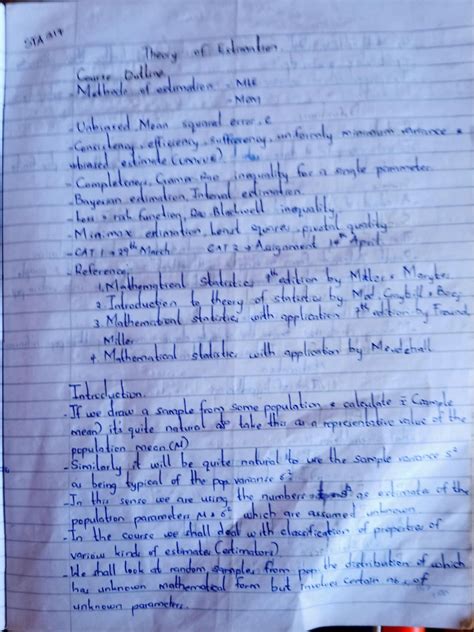 STA 217
Theory of Estimation.
Course Outline
- Methods of estimation - MLE
- MOM
- Unbiased, Mean squared error, e
- Consistency, efficiency, sufficiency, uniformly minimum variance &
ubiased estimate (UMVUE)
- Completeness, Cramer Rao inequality for a single parameter
- Bayesian estimation, Interval estimation.
- Loss & risk function, Rao Blackwell inequality
- Minimax estimation, Least squares, pivotal quality
- CAT 1 → 29th March CAT 2 & Assignment 19th April
- Reference:
1. Mathematical statistics edition by Miller &
2. Introduction to theory of statistics by Mood, Graybill & Boes
3 Mathematical statistics with application 7th edition by Freund
Miller
4 Mathematical statistics with application by Mendehall
Introduction.
- If we draw a sample from some population & calculate x̄ (sample
mean) its quite natural to take this as a representative value of the
population mean (M)
- Similarly it will be quite natural to use the sample variance s²
as being typical of the pop variance σ²
- In this sense we are using the numbers as estimate of the
population parameters M & σ² which are assumed unknown
- In the course we shall deal with classification of properties of
various kinds of estimates (estimators)
- We shall look at random samples from pop the distribution of which
has unknown mathematical form but involves certain no. of
unknown parameters.